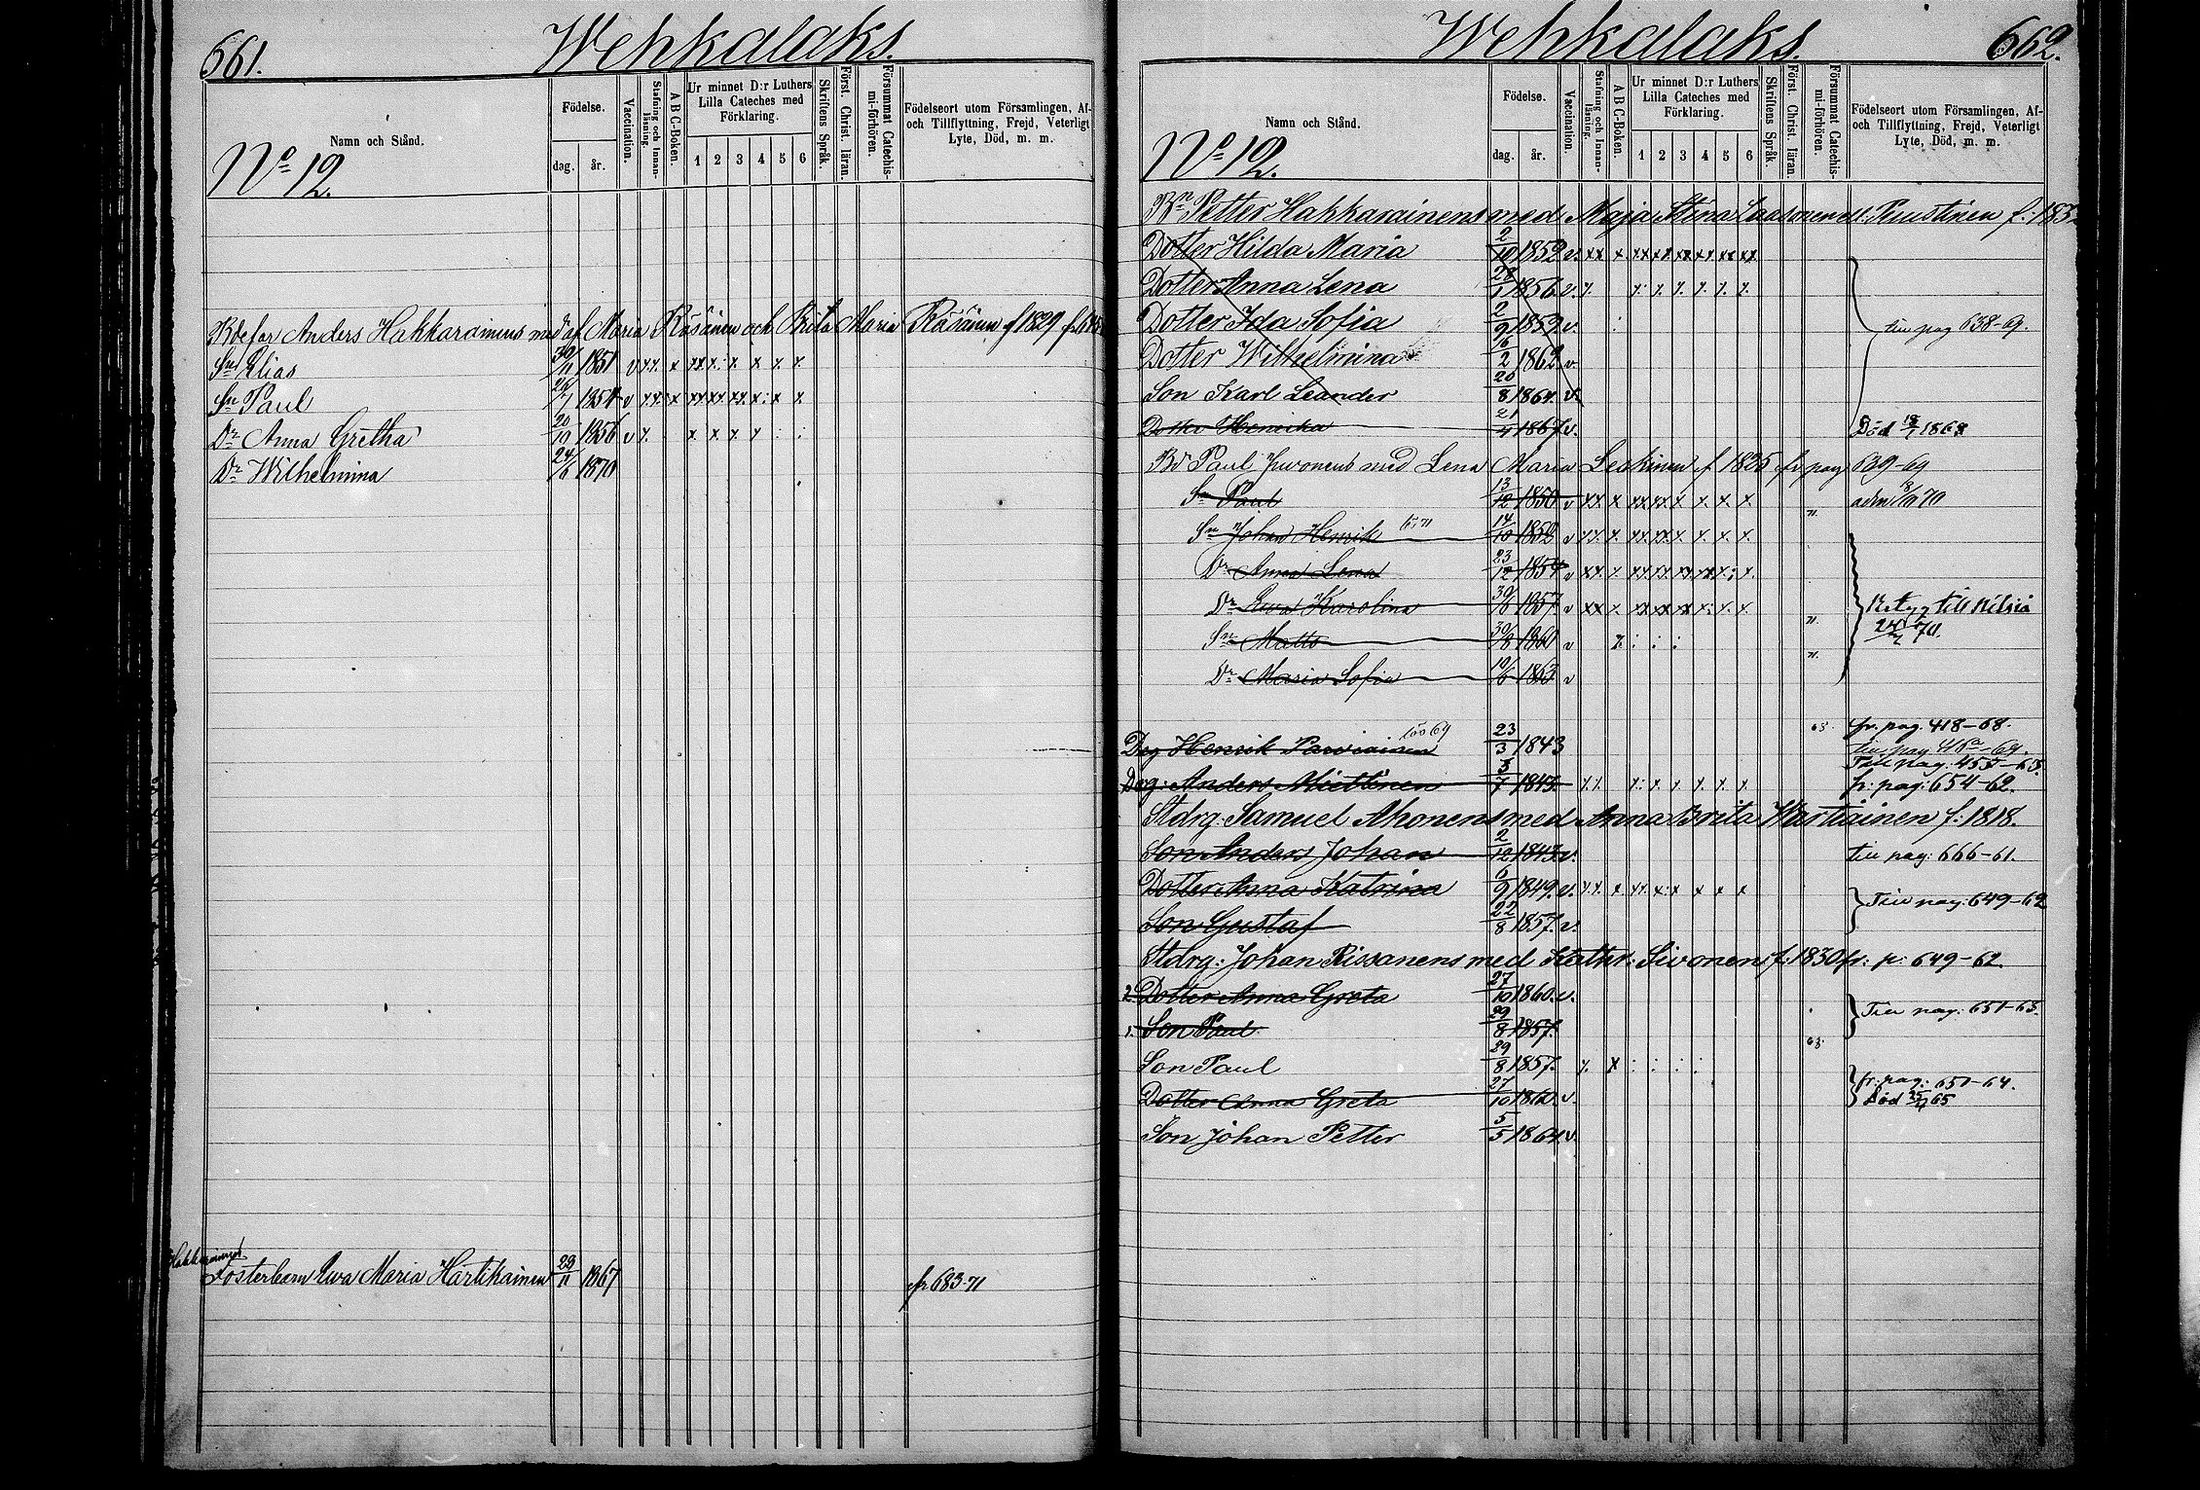 661.
Wehkalaks.
Namn och Stånd.
Födelse.
dag.
år.
Vaccination.
Stafning och Innanläsning.
A B C-Boken.
Ur minnet D:r Luthers Lilla Cateches med Förklaring.
1 2 3 4 5 6
Skriftens Språk.
Först. Christ. läran.
Försummat Catechismi-förhören.
Födelseort utom Församlingen, Af-
och Tillflyttning, Frejd, Veterligt
Lyte, Död, m. m.
No 12.
Anders Hakkarainens med af. Maria Räsänen och Brita Maria Räsänen f 1829
Sn Elias 30/11 1851 v
Sn Paul 26/1 1854 v
Dr Anna Gretha 20/10 1856 v
Dr Wilhelmina 24/6 1870
Hakkarainens
Fosterbarn Ewa Maria Hartikainen 29/11 1867 fr 683-71
662.
Wehkalaks.
Namn och Stånd.
Födelse.
dag.
år.
Vaccination.
Stafning och Innanläsning.
A B C-Boken.
Ur minnet D:r Luthers Lilla Cateches med Förklaring.
1 2 3 4 5 6
Skriftens Språk.
Först. Christ. läran.
Försummat Catechismi-förhören.
Födelseort utom Församlingen, Af-
och Tillflyttning, Frejd, Veterligt
Lyte, Död, m. m.
No 12.
Petter Hakkarainens med Maja Stina Laasonen Puustinen f: 183
Dotter Hilda Maria 2/10 1852 v.
Dotter Anna Lena 28/1 1856 v.
Dotter Ida Sofia 2/9 1859 v. till pag 638-69.
Dotter Wilhelmina 16/2 1862 v.
Son Karl Leander 20/8 1864. v.
Dotter Henrika 21/4 1867 v. Död 18/7 1868
Bd Paul Juvonens med Lena Maria Leskinen f 1835 fr pag 639-69
Sn Paul 13/12 1850 v
Sn Johan Henrik 14/10 1852 v
Dr Anna Lena 23/12 1854 v
Dr Ewa Karolina 30/6 1857 v Betyg till Nilsiä
Sn Matts 30/8 1860 v
Dr Maria Sofia 10/6 1863 v
Drg Henrik Parviainen 23/3 1843 fr. pag. 418-68.
Drg: Anders Miettinen 1845 fr: pag: 654-62.
Stdrg: Samuel Ahonens med Anna Brita Wartiainen f: 1818.
Son Anders Johan 2/12 1843 v. till pag: 666-61.
Dotter Anna Katrina 6/9 1849. v. Till pag: 649-62
Son Gustaf 22/8 1857. v.
Stdrg: Johan Rissanens med Kathr: Sivonen f. 1830 fr: p: 649-62.
2. Dotter Anna Greta 27/10 1860. v. Till pag: 651-63.
1. Son Paul 29/8 1857.
Son Paul 29/8 1857.
Dotter Anna Greta 27/10 1860. v. fr. pag: 651-64.
Död 65
Son Johan Petter 5/5 1864 v.